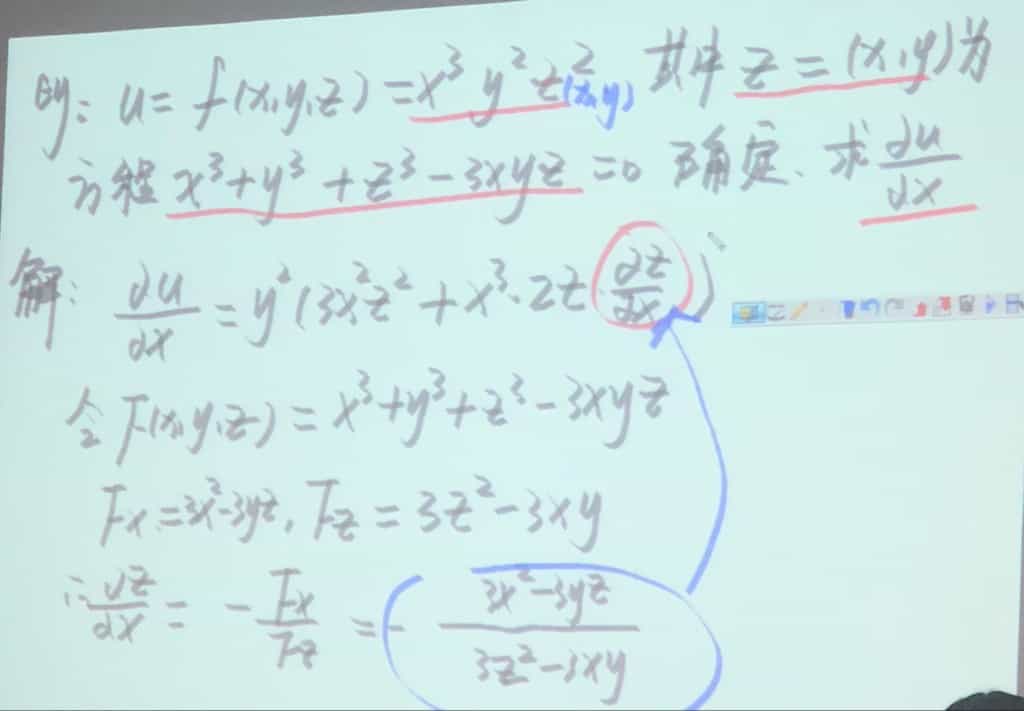 eg: u = f(x,y,z) = x³y²z²(x,y) 其中 z = (x,y)为
方程 x³+y³+z³-3xyz =0 确定. 求 ∂u/∂x
解: ∂u/∂x = y²(3x²z² + x³·2z ∂z/∂x)
令 F(x,y,z) = x³+y³+z³-3xyz
Fx=3x²-3yz, Fz = 3z²-3xy
∴ ∂z/∂x = - Fx/Fz = - (3x²-3yz)/(3z²-3xy)